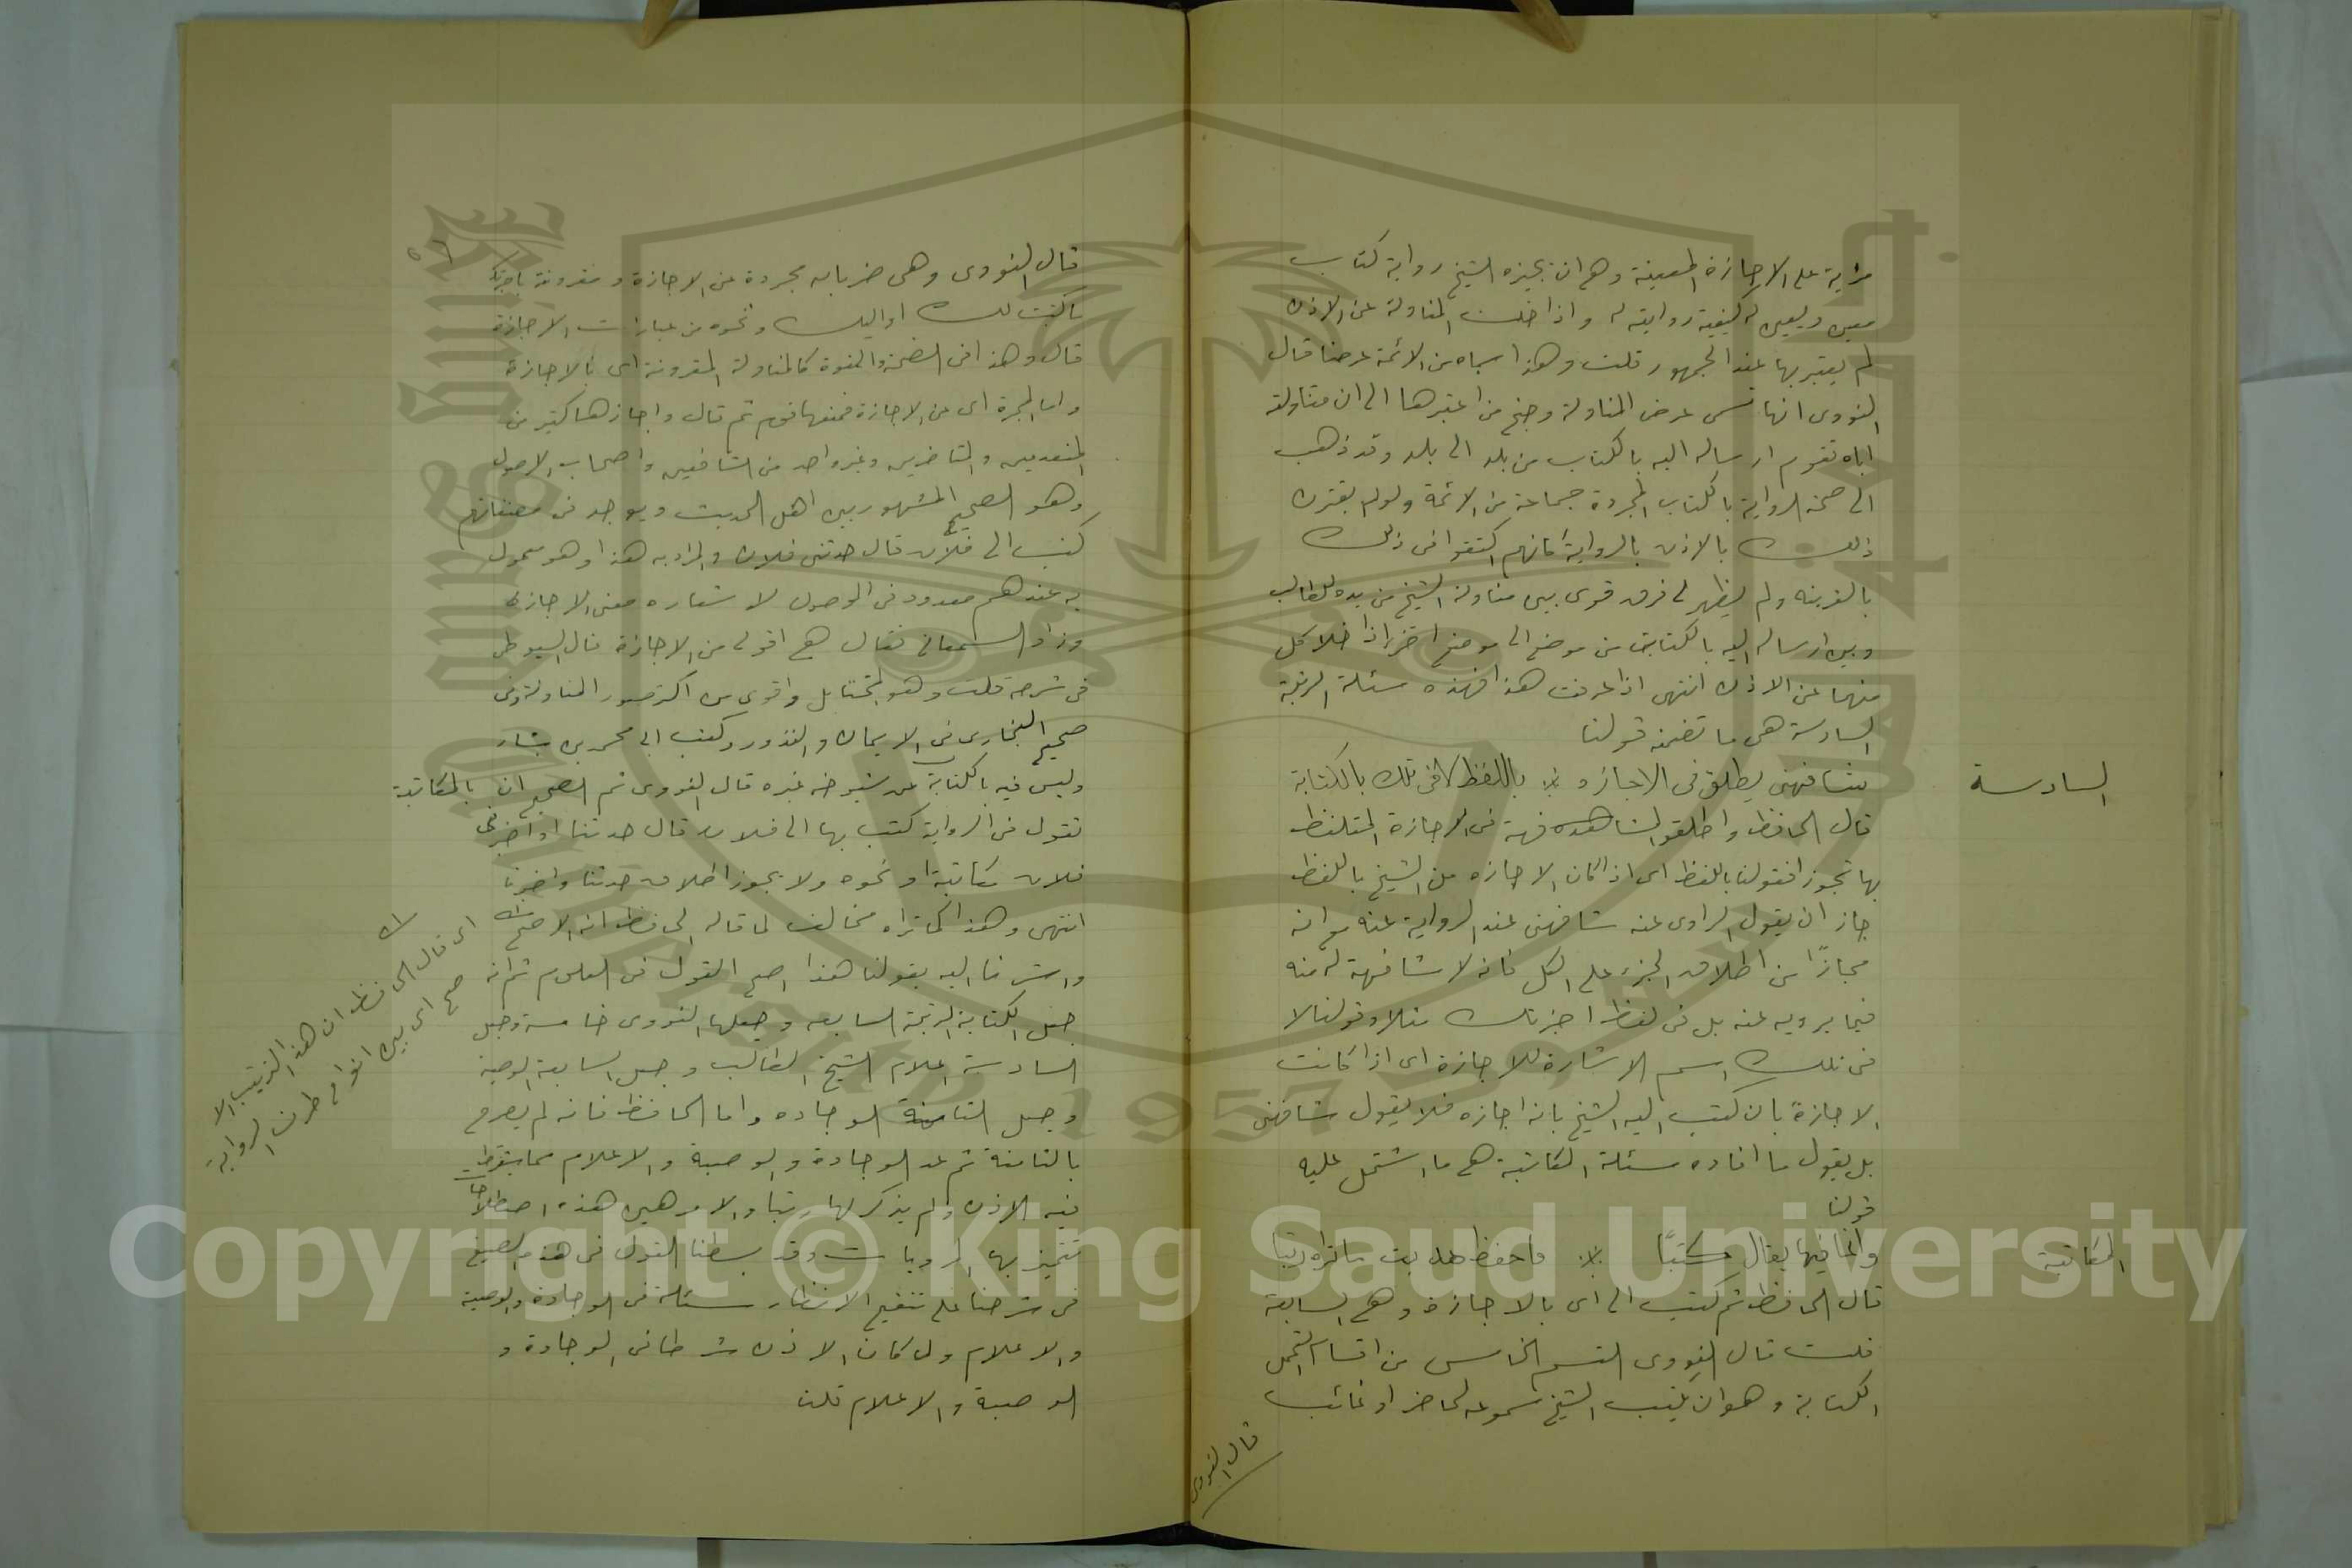 مزية على الاجازة المعينة وهى ان يجيزه الشيخ رواية كتاب
معين ويعين له كيفية روايته له واذا خلت المناولة عن الاذن
لم يعتبر بها عند الجمهور قلت وهذا سماه من الائمة عرضا قال
النووى انها تسمى عرض المناولة وجنح من اعتبرها الى ان مناولته
اياه تقوم ارساله اليه بالكتاب من بلد الى بلد وقد ذهب
الى صحة الرواية بالكتاب المجردة جماعة من الائمة ولو لم يقترن
ذلك بالاذن بالرواية كانهم اكتفوا فى ذلك
بالقرينه ولم يظهر لى فرق قوى بين مناولة الشيخ من يده للطالب
وبين ارساله اليه بالكتاب من موضع الى موضع اخر اذا خلا كل
منهما عن الاذن انتهى اذا عرفت هذا فهذه مسئلة الرتبة
السادسة هى ما تضمنه قولنا
السادسة
شافهنى يطلق فى الاجازه باللفظ لا فى تلك بالكتابة
قال الحافظ واطلقوا المشافهة فى الاجازة المتلفظ
بها تجوزا فقولنا باللفظ اى اذا كان الاجازه من الشيخ باللفظ
جاز ان يقول الراوى عنه شافهنى عند الرواية عنه مع انه
مجازًا من اطلاق الجزء على الكل فانه لا شافهة له منه
فيما يرويه عنه بل فى لفظ اجزتك مثلا وقولنا لا
فى تلك اسم الاشارة للاجازة اى اذا كانت
الاجازة بان كتب اليه الشيخ بانه اجازه فلا يقول شافهنى
بل يقول ما افاده مسئلة المكاتبة هى ما اشتمل عليه
قولنا
المكاتبة
وانما فيها يقال كتبًا فاحفظ هديت ما تراه رتبا
قال الحافظ ثم كتب الى اى بالاجازة وهى السابعة
قلت قال النووى القسم الخامس من اقسام التحمل
الكتابة وهو ان يكتب الشيخ مسموعه لحاضر او غائب
قال النووى
قال النووى وهى ضربان مجردة عن الاجازة ومقرونة باجزتك
ما كتبت لك او اليك ونحوه من عبارات الاجازة
قال وهذا فى الصحة والقوة كالمناولة المقرونة اى بالاجازة
واما المجردة اى عن الاجازة فمنعها قوم ثم قال واجازها كثير من
المتقدمين والمتاخرين وغير واحد من الشافعيين واصحاب الاصول
وهو الصحيح المشهور بين اهل الحديث ويوجد فى مصنفاتهم
كتب الى فلان قال حدثنى فلان والمراد به هذا وهو معمول
به عندهم معدود فى الموصول لاشعاره معنى الاجازة
وزاد السمعانى فقال هى اقوى من الاجازة قال السيوطى
فى شرحه قلت وهو المختار بل واقوى من اكثر صور المناولة وفى
صحيح البخارى فى الايمان والنذور وكتب الى محمد بن بشار
وليس فيه بالكتابة عن شيوخه غيره قال النووى ثم الصحيح ان
بالمكاتبة
تقول فى الرواية كتب بها الى فلان قال حدثنا او اخبرنى
فلان مكاتبة او نحوه ولا يجوز اطلاق حدثنا واخبرنا
انتهى وهذا كما تراه مخالف لما قاله الحافظ انه الاصح
واشرنا اليه بقولنا هذا اصح القول فى العلوم ثم انه
جعل الكتابة الرتبة السابعه وجعلها النووى خامسة وجعل
السادسة اعلام الشيخ الطالب وجعل السابعة الوصية
وجعل الثامنة الوجاده واما الحافظ فانه لم يصرح
بالثامنة ثم عد الوجادة والوصية والاعلام مما يشترط
فيه الاذن ولم يذكر لها رتبا والامر هين هذه اصطلاحات
تتميز بها المرويات وقد بسطنا القول فى هذه الصيغ
فى شرحنا على تنقيح الانظار مسئلة فى الوجادة والوصية
والاعلام ولما كان الاذن شرطا فى الوجادة و
الوصية والاعلام قلت
اى قال الحافظ ان هذا الترتيب الا
صح اى بين انواع طرق الرواية
Copyright © King Saud University
1957